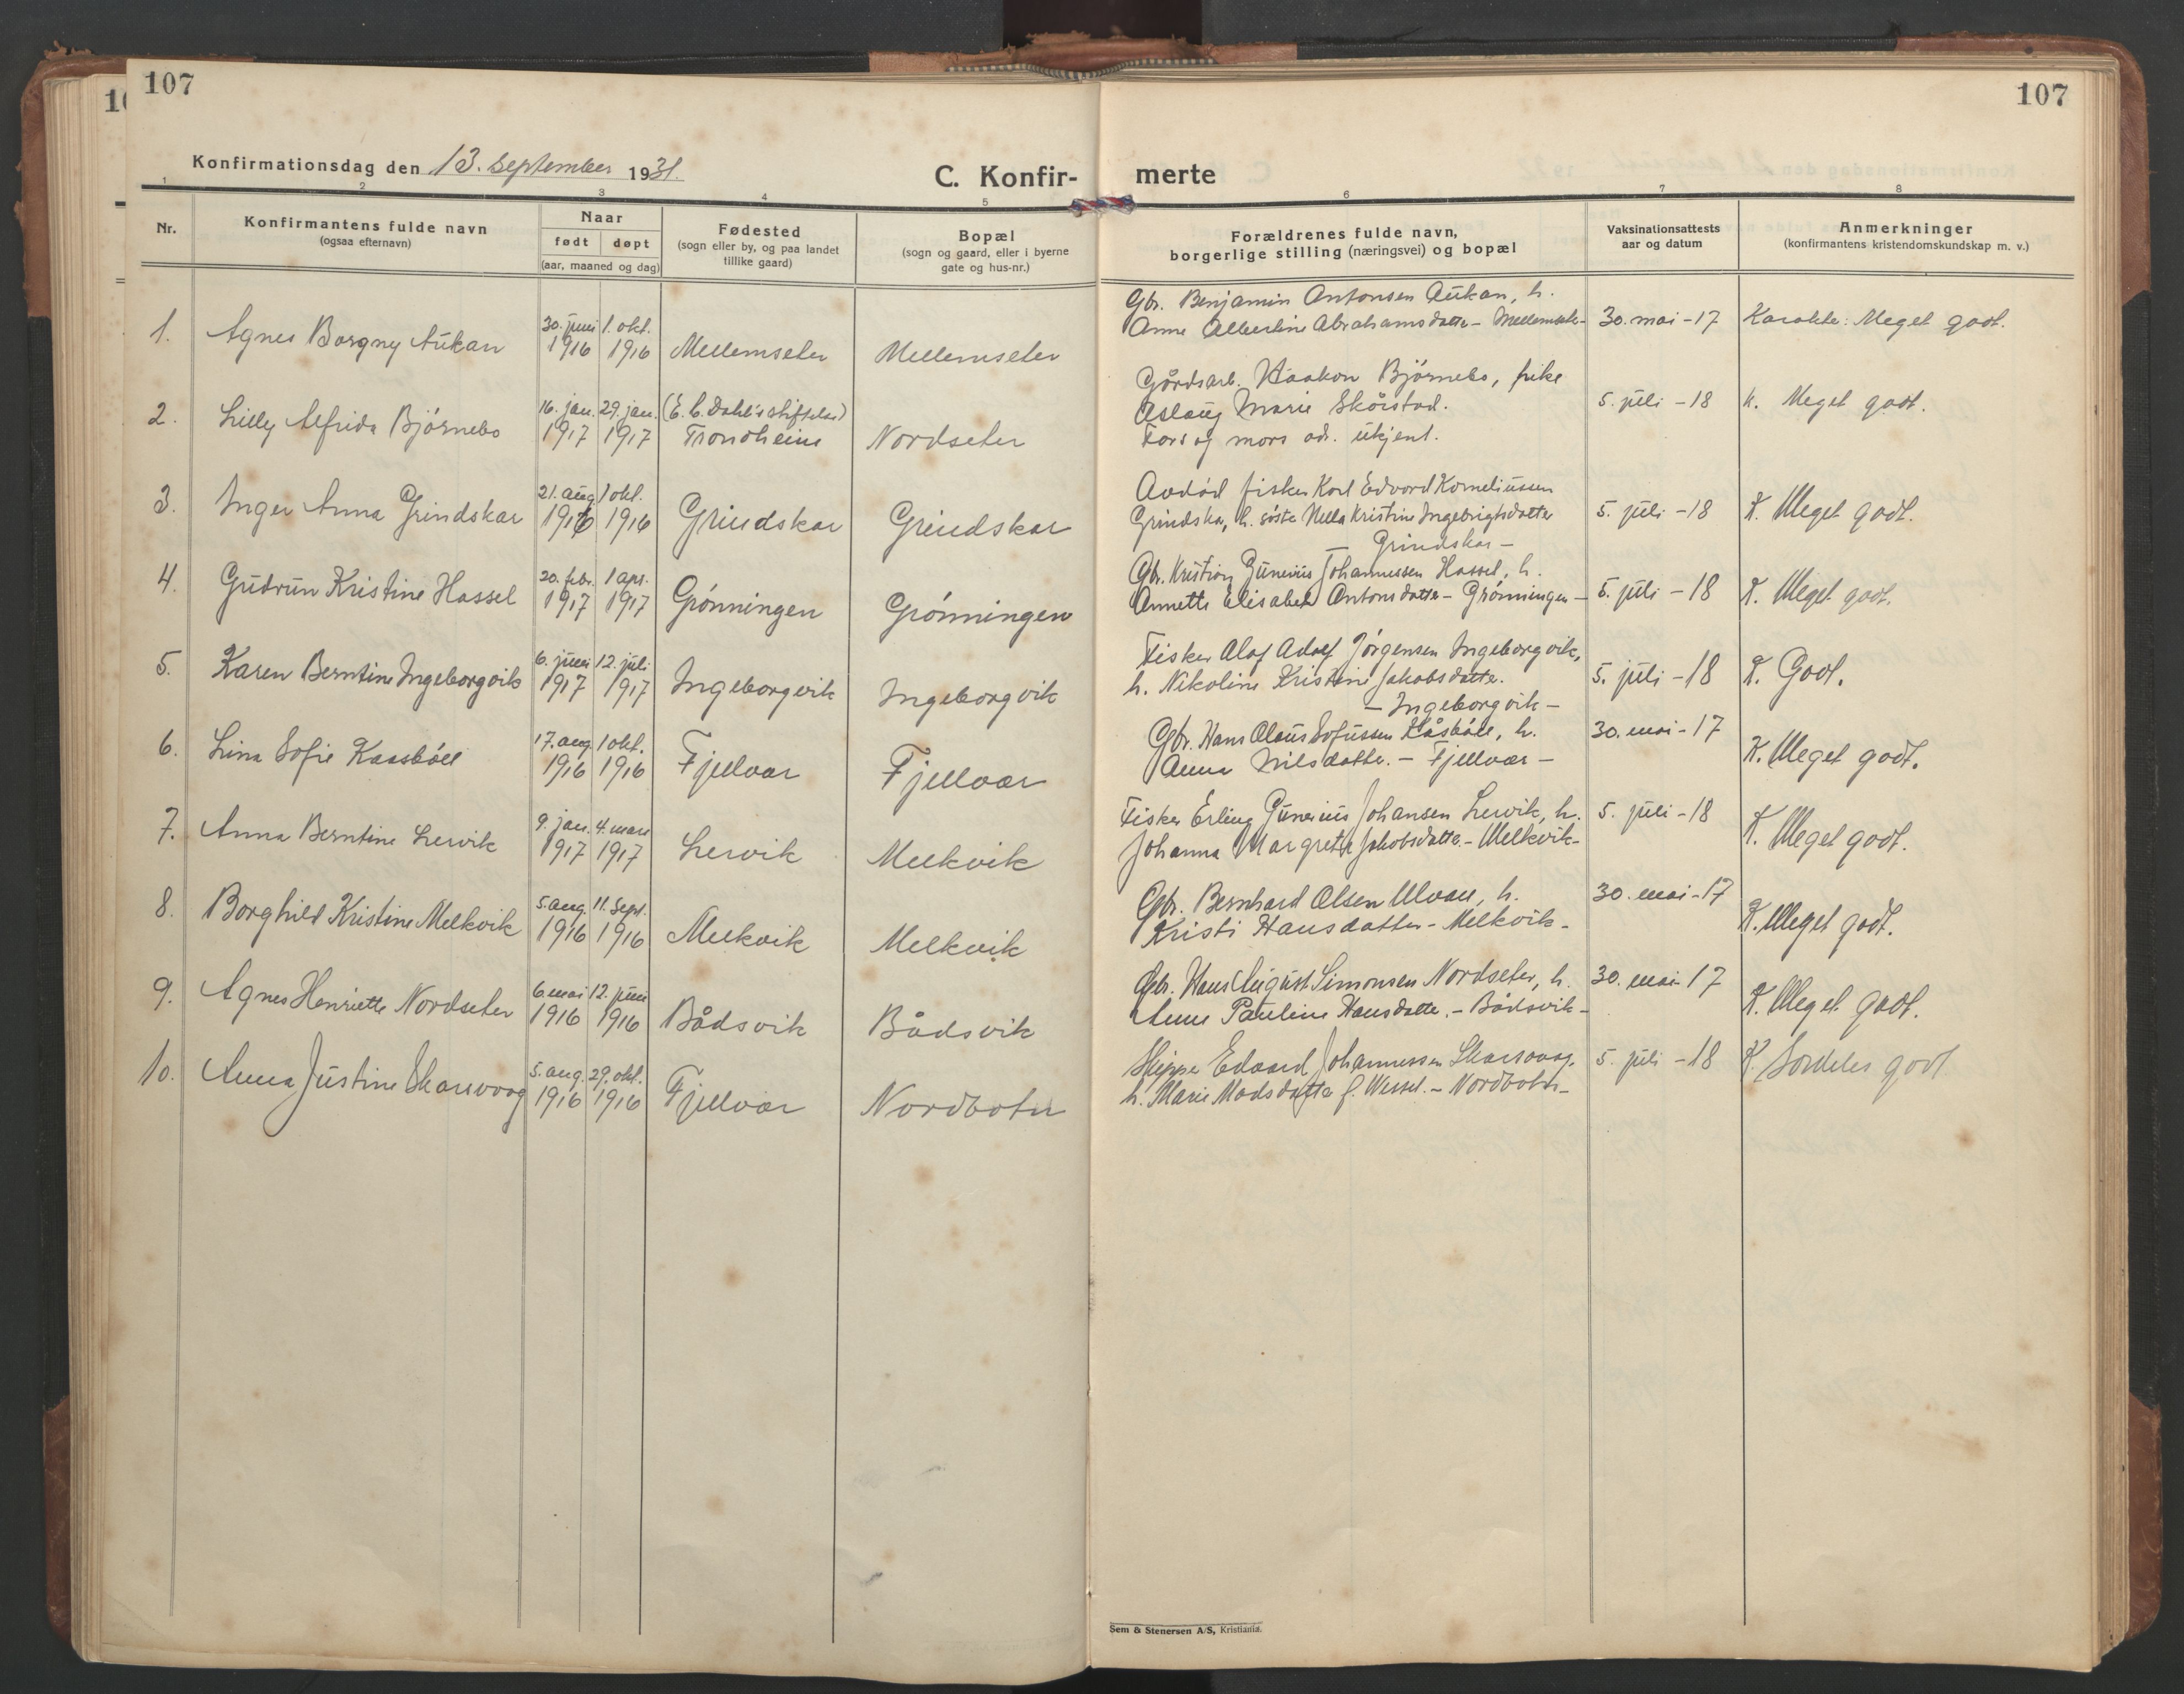 107
107
Konfirmationsdag den 13. september 1931.
C. Konfir-
merte
1 2 3 4 5 6 7 8
Nr.
Konfirmantens fulde navn
(ogsaa efternavn)
Naar
født døpt
(aar, maaned og dag)
Fødested
(sogn eller by, og paa landet
tillike gaard)
Bopæl
(sogn og gaard, eller i byerne
gate og hus-nr.)
Forældrenes fulde navn,
borgerlige stilling (næringsvei) og bopæl
Vaksinationsattests
aar og datum
Anmerkninger
(konfirmantens kristendomskundskap m. v.)
Gbr. Benjamin Antonsen Aukan, h.
30. juni 1. okt.
1. Agnes Borgny Aukan 1916 1916 Mellemseter Mellemseter Anne Albertine Abrahamsdatter - Mellemseter - 30. mai - 17 Karakter: Meget godt.
Gårdsarb. Haakon Bjørnebo, pike
16. jan. 29. jan. (E. C. Dahl's stiftelse) Aslaug Marie Skårstad. 5. juli - 18 K. Meget godt.
2. Lilly Alfrida Bjørnebo 1917 1917 Trondheim Nordseter Fars og mors adr. ukjent.
21. aug 1 okt. Avdød fisker Karl Edvard Korneliussen
3. Inger Anna Grindskar 1916 1916 Grindskar Grindskar Grindskar, h. Nella Kristine Ingebrigtsdatter 5. juli - 18 K. Meget godt.
- Grindskar -
20. febr. 1 apr. Gbr. Kristian Gunerius Johannessen Hassel, h.
4. Gudrun Kristine Hassel 1917 1917 Grønningen Grønningen Annette Elisabet Antonsdatter - Grønningen - 5. juli - 18 K. Meget godt.
6. juni 12. juli Fisker Olaf Adolf Jørgensen Ingeborgvik,
5. Karen Berntine Ingeborgvik 1917 1917 Ingeborgvik Ingeborgvik h. Nikoline Kristine Jakobsdatter. 5. juli - 18 K. Godt.
- Ingeborgvik -
17. aug 1 okt. Gbr. Hans Olaus Sofussen Kåsbøll, h. 30. mai - 17
6. Lina Sofie Kaasbøll 1916 1916 Fjellvær Fjellvær Anna Nilsdatter. - Fjellvær - K. Meget godt.
9. jan. 4. mars Fisker Erling Gunerius Johansen Lervik, h. 5. juli - 18
7. Anna Berntine Lervik 1917 1917 Lervik Melkvik Johanna Margrete Jakobsdatter. - Melkvik - K. Meget godt.
5. aug. 11. sept. Gbr. Bernhard Olsen Ulvan, h. 30. mai - 17
8. Borghild Kristine Melkvik 1916 1916 Melkvik Melkvik Kristi Hansdatter - Melkvik - K. Meget godt.
6. mai 12. juni Gbr. Hans August Simonsen Nordseter, h. 30. mai - 17
9. Agnes Henriette Nordseter 1916 1916 Bådsvik Bådsvik Anne Pauline Hansdatter. - Bådsvik - K. Meget godt.
5. aug. 29. okt. Skipper Edvard Johannessen Skarsvaag, 5. juli - 18
10. Anna Justine Skarsvaag 1916 1916 Fjellvær Nordbotn h. Marie Madsdatter f. Wessel. - Nordbotn - K. Særdeles godt
Sem & Stenersen A/S, Kristiania.